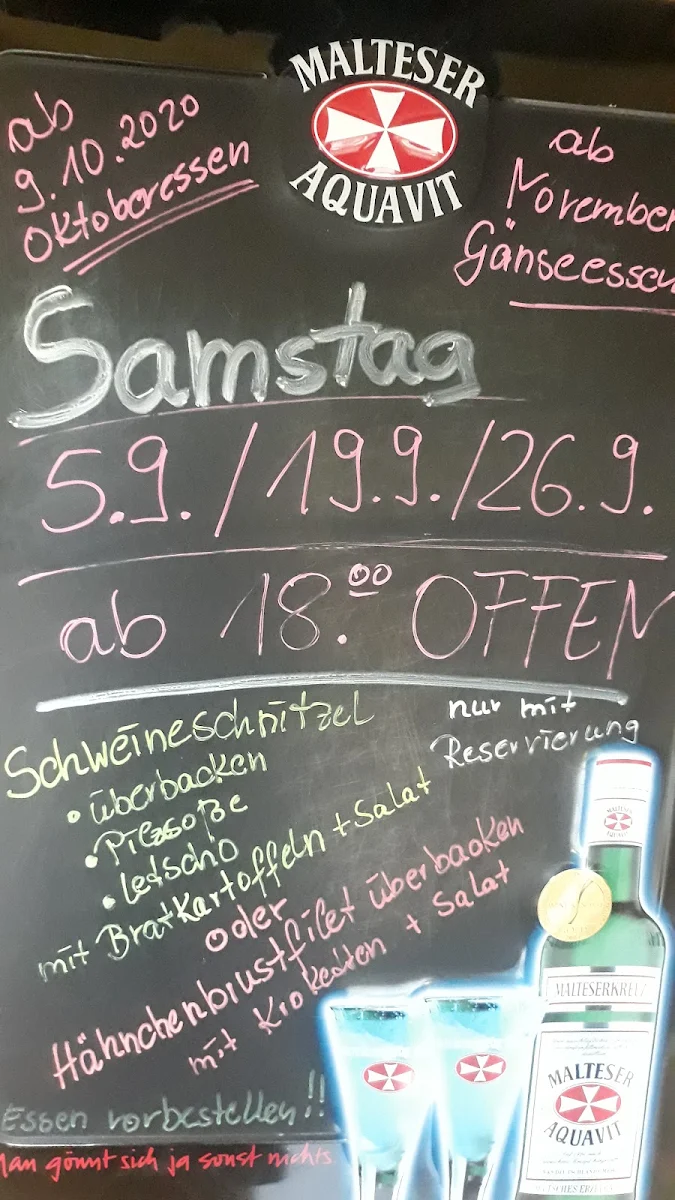 MALTESER
AQUAVIT
ab
9.10.2020
Oktoberessen
ab
November
Gänseessen
Samstag
5.9./19.9./26.9.
ab 18.00 OFFEN
nur mit
Reservierung
Schweineschnitzel
• überbacken
• Pilzsoße
• Letscho
mit Bratkartoffeln + Salat
oder
Hähnchenbrustfilet überbacken
mit Kroketten + Salat
Essen vorbestellen!!
Man gönnt sich ja sonst nichts
MALTESERKREUZ
MALTESER
AQUAVIT